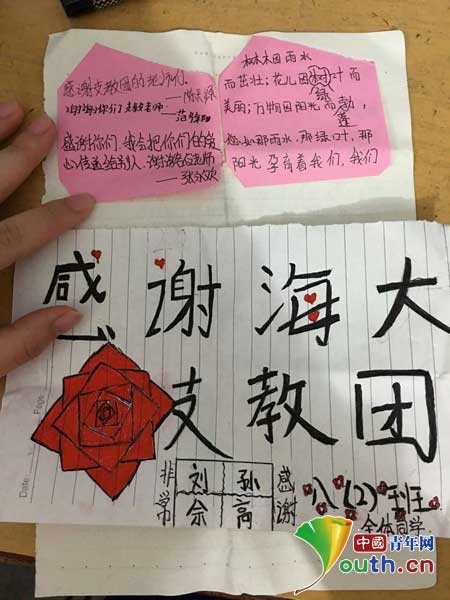 感谢支教团的老师们。
谢谢你们支教老师
感谢你们,我会把你们的爱
心传递给别人.谢谢
林木因雨水
而茁壮;花儿因绿叶而
美丽;万物因阳光而勃,
蓬
您如那雨水,那绿叶,那
阳光孕育着我们,我们
感谢海大
支教团
非常
刘 孙
余 高
感谢
八(2)班
全体同学
Date:
Page:
中國青年网
Youth.cn